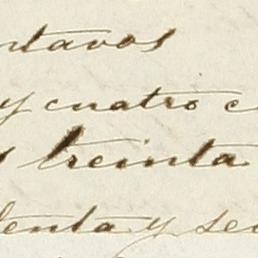 ntavos
y cuatro c
s treinta
enta y se